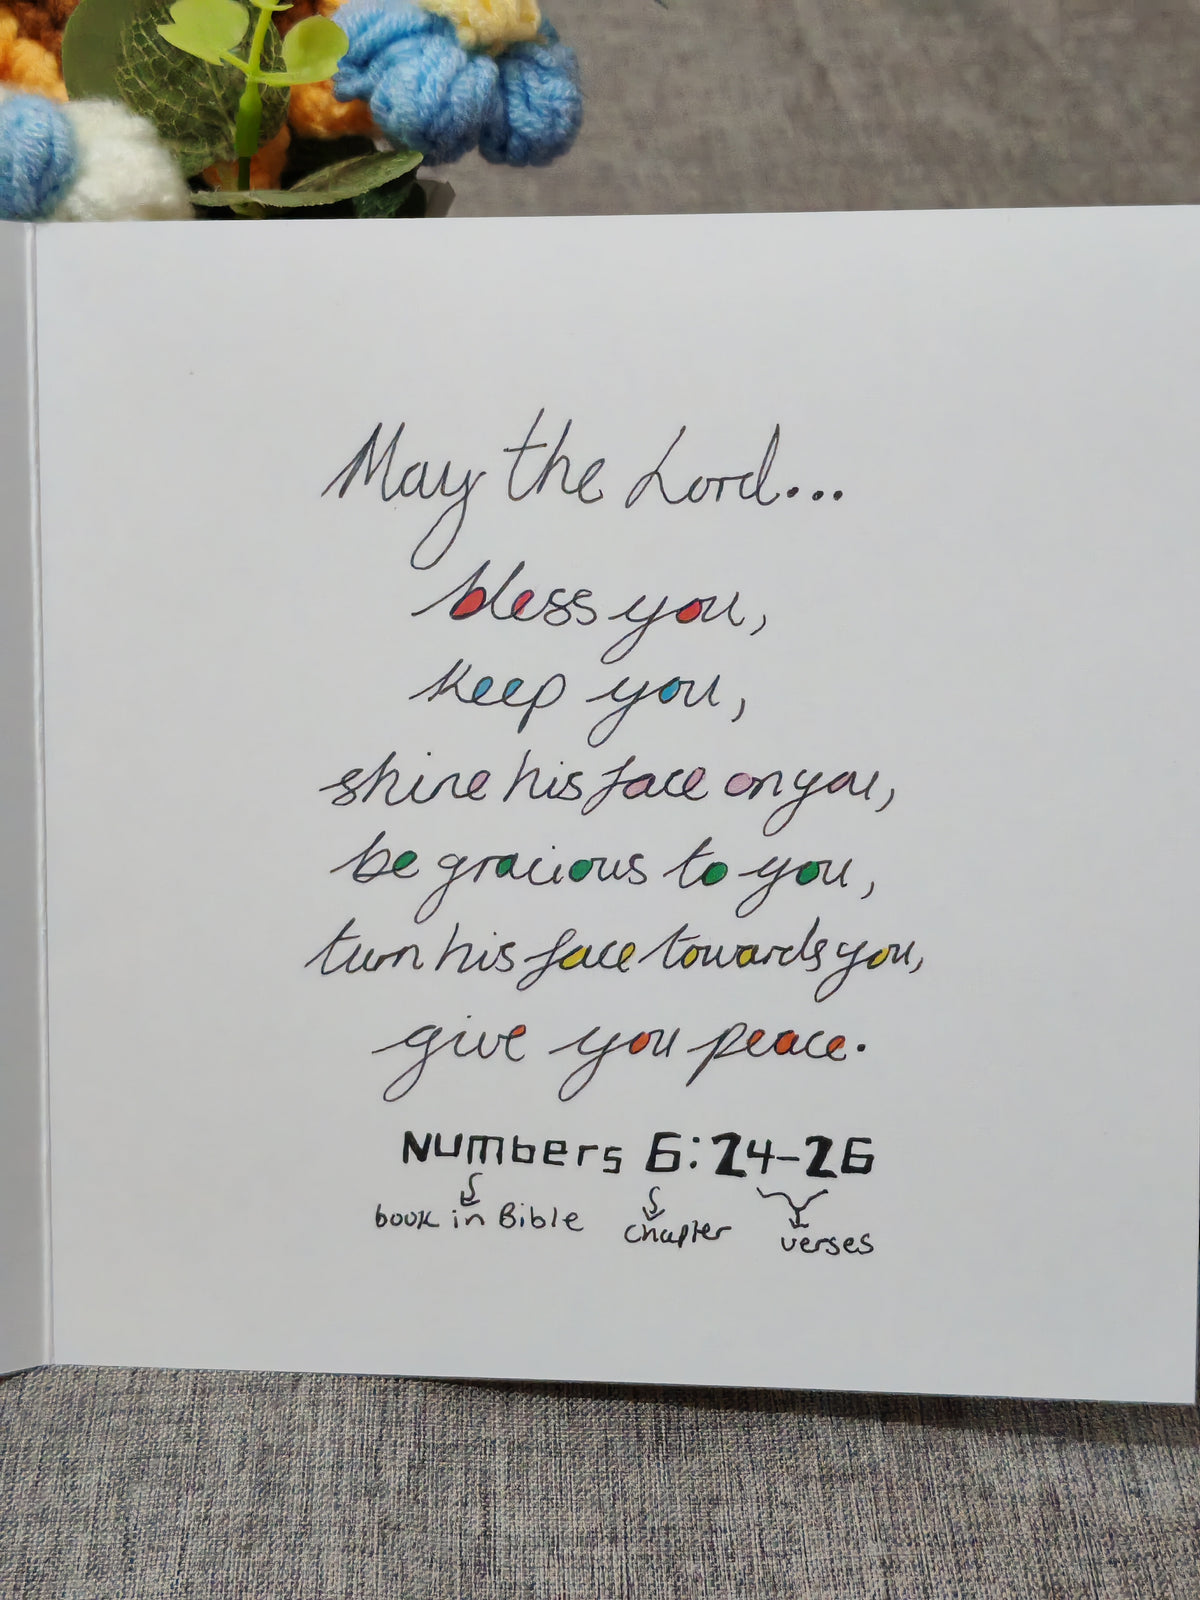 May the Lord...
bless you,
keep you,
shine his face on you,
be gracious to you,
turn his face towards you,
give you peace.
Numbers 6:24-26
book in Bible chapter verses